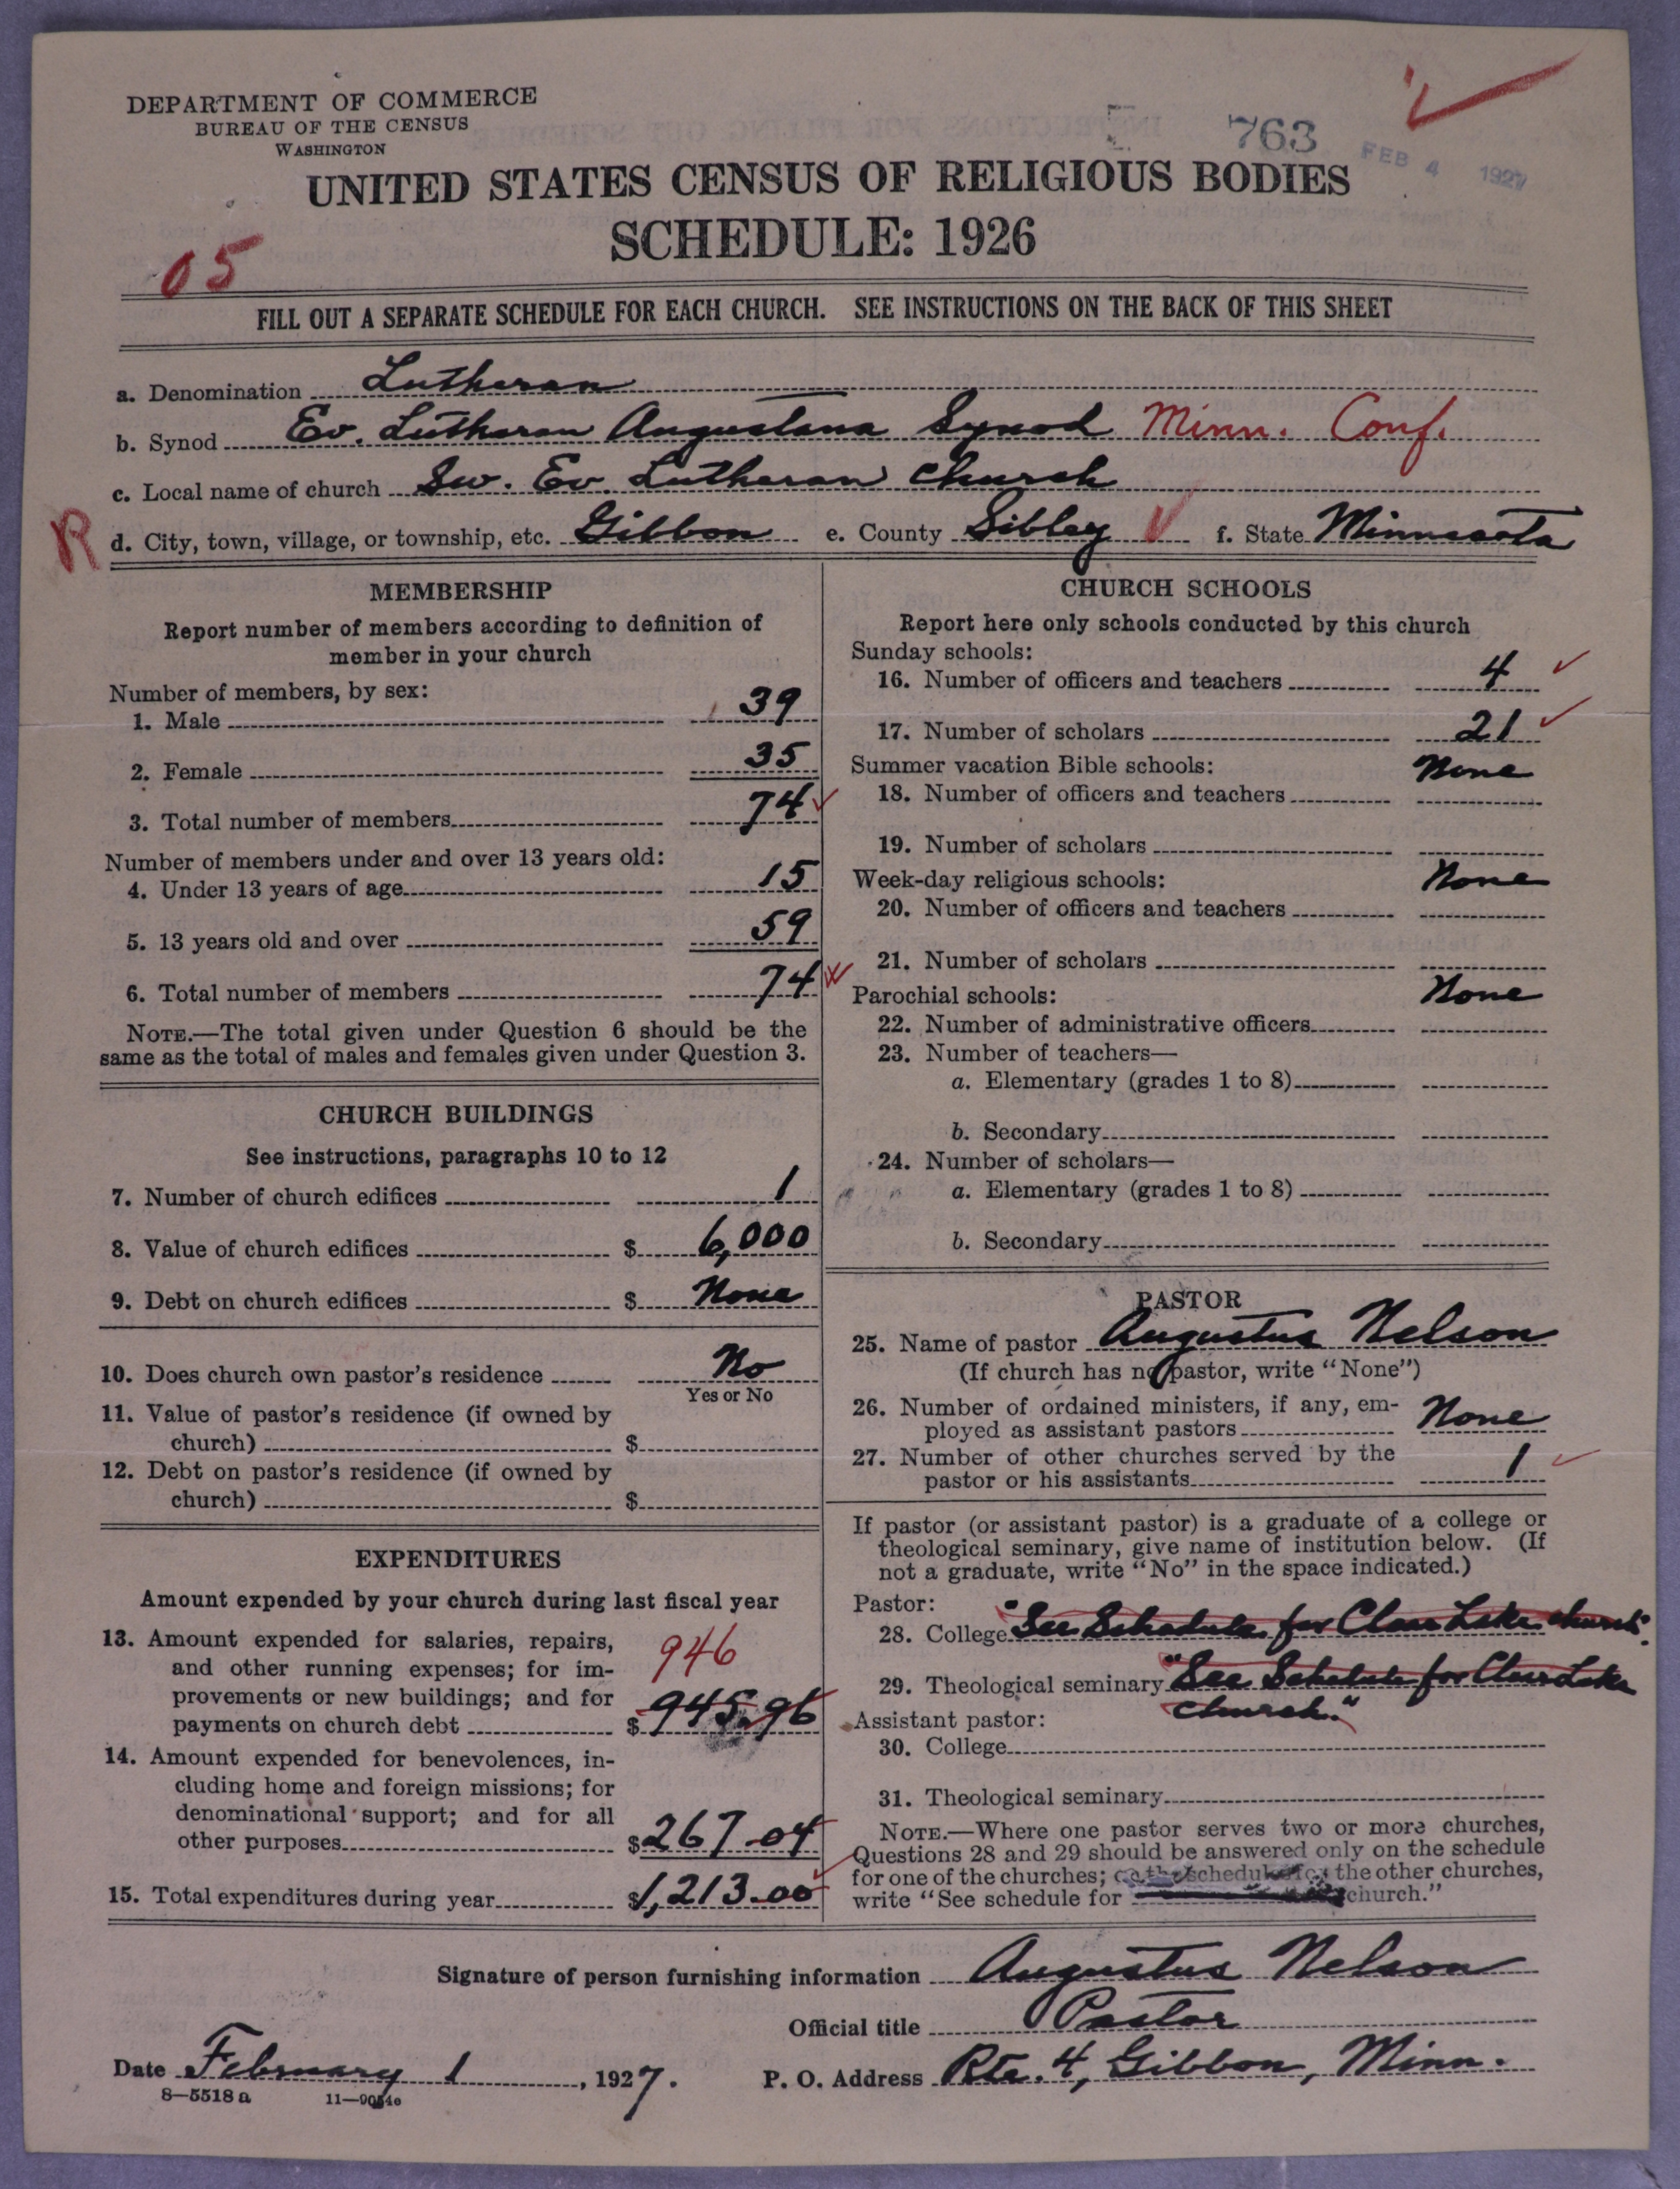 DEPARTMENT OF COMMERCE
BUREAU OF THE CENSUS
WASHINGTON
763
FEB 4 1927
UNITED STATES CENSUS OF RELIGIOUS BODIES
SCHEDULE: 1926
05
FILL OUT A SEPARATE SCHEDULE FOR EACH CHURCH. SEE INSTRUCTIONS ON THE BACK OF THIS SHEET
a. Denomination Lutheran
b. Synod Ev. Lutheran Augustana Synod Minn. Conf.
c. Local name of church Sw. Ev. Lutheran Church
R d. City, town, village, or township, etc. Gibbon e. County Sibley f. State Minnesota
MEMBERSHIP
Report number of members according to definition of
member in your church
Number of members, by sex:
1. Male 39
2. Female 35
3. Total number of members 74
Number of members under and over 13 years old:
4. Under 13 years of age 15
5. 13 years old and over 59
6. Total number of members 74
NOTE.—The total given under Question 6 should be the
same as the total of males and females given under Question 3.
CHURCH BUILDINGS
See instructions, paragraphs 10 to 12
7. Number of church edifices 1
8. Value of church edifices $ 6,000
9. Debt on church edifices $ None
10. Does church own pastor's residence No
Yes or No
11. Value of pastor's residence (if owned by
church) $
12. Debt on pastor's residence (if owned by
church) $
EXPENDITURES
Amount expended by your church during last fiscal year
13. Amount expended for salaries, repairs,
and other running expenses; for im- 946
provements or new buildings; and for
payments on church debt $ 945.96
14. Amount expended for benevolences, in-
cluding home and foreign missions; for
denominational support; and for all
other purposes $ 267.04
15. Total expenditures during year $ 1,213.00
CHURCH SCHOOLS
Report here only schools conducted by this church
Sunday schools:
16. Number of officers and teachers 4
17. Number of scholars 21
Summer vacation Bible schools: None
18. Number of officers and teachers
19. Number of scholars
Week-day religious schools: None
20. Number of officers and teachers
21. Number of scholars
Parochial schools: None
22. Number of administrative officers
23. Number of teachers—
a. Elementary (grades 1 to 8)
b. Secondary
24. Number of scholars—
a. Elementary (grades 1 to 8)
b. Secondary
PASTOR
25. Name of pastor Augustus Nelson
(If church has no pastor, write "None")
26. Number of ordained ministers, if any, em-
ployed as assistant pastors None
27. Number of other churches served by the
pastor or his assistants 1
If pastor (or assistant pastor) is a graduate of a college or
theological seminary, give name of institution below. (If
not a graduate, write "No" in the space indicated.)
Pastor:
28. College "See Schedule for Clear Lake church".
29. Theological seminary "See Schedule for Clear Lake
church."
Assistant pastor:
30. College
31. Theological seminary
NOTE.—Where one pastor serves two or more churches,
Questions 28 and 29 should be answered only on the schedule
for one of the churches; on the schedules for the other churches,
write "See schedule for church."
Signature of person furnishing information Augustus Nelson
Official title Pastor
Date February 1, 1927. P. O. Address Rte. 4, Gibbon, Minn.
8—5518 a